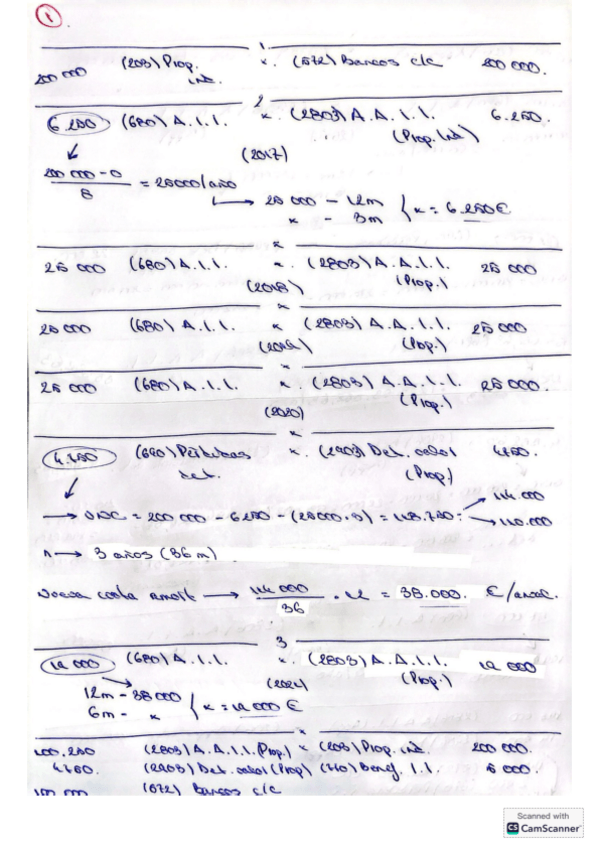 1
1
200 000 (203) Prop. ind. x. (572) Bancos c/c 200 000.
2
6.250 (680) A.I.I. x. (2803) A.A.I.I. (Prop. Ind) 6.250.
(2017)
200 000 - 0 / 8 = 25000/año
25 000 - 12m
x - 3m } x = 6.250€
x
25 000 (680) A.I.I. x. (2803) A.A.I.I. (Prop.) 25 000
(2018)
x
25 000 (680) A.I.I. x (2803) A.A.I.I. (Prop.) 25 000
(2019)
x
25 000 (680) A.I.I. x. (2803) A.A.I.I. (Prop.) 25 000.
(2020)
x
4.750 (690) Pérdidas det. x. (2903) Det. valor (Prop) 4750.
VNC = 200 000 - 6250 - (25000·3) = 118.750
114.000
110.000
n → 3 años (36 m).
Nueva cuota amort → 114 000 / 36 · 12 = 38.000. €/anual.
3
19 000 (680) A.I.I. x. (2803) A.A.I.I. (Prop.) 19 000
(2021)
12m - 38 000
6m - x } x = 19 000 €
x
100.250 (2803) A.A.I.I. (Prop) x (203) Prop. ind. 200 000.
4.750. (2903) Det. valor (Prop) (770) Benef. I.I. 5 000.
100 000 (572) Bancos c/c
Scanned with
CS CamScanner